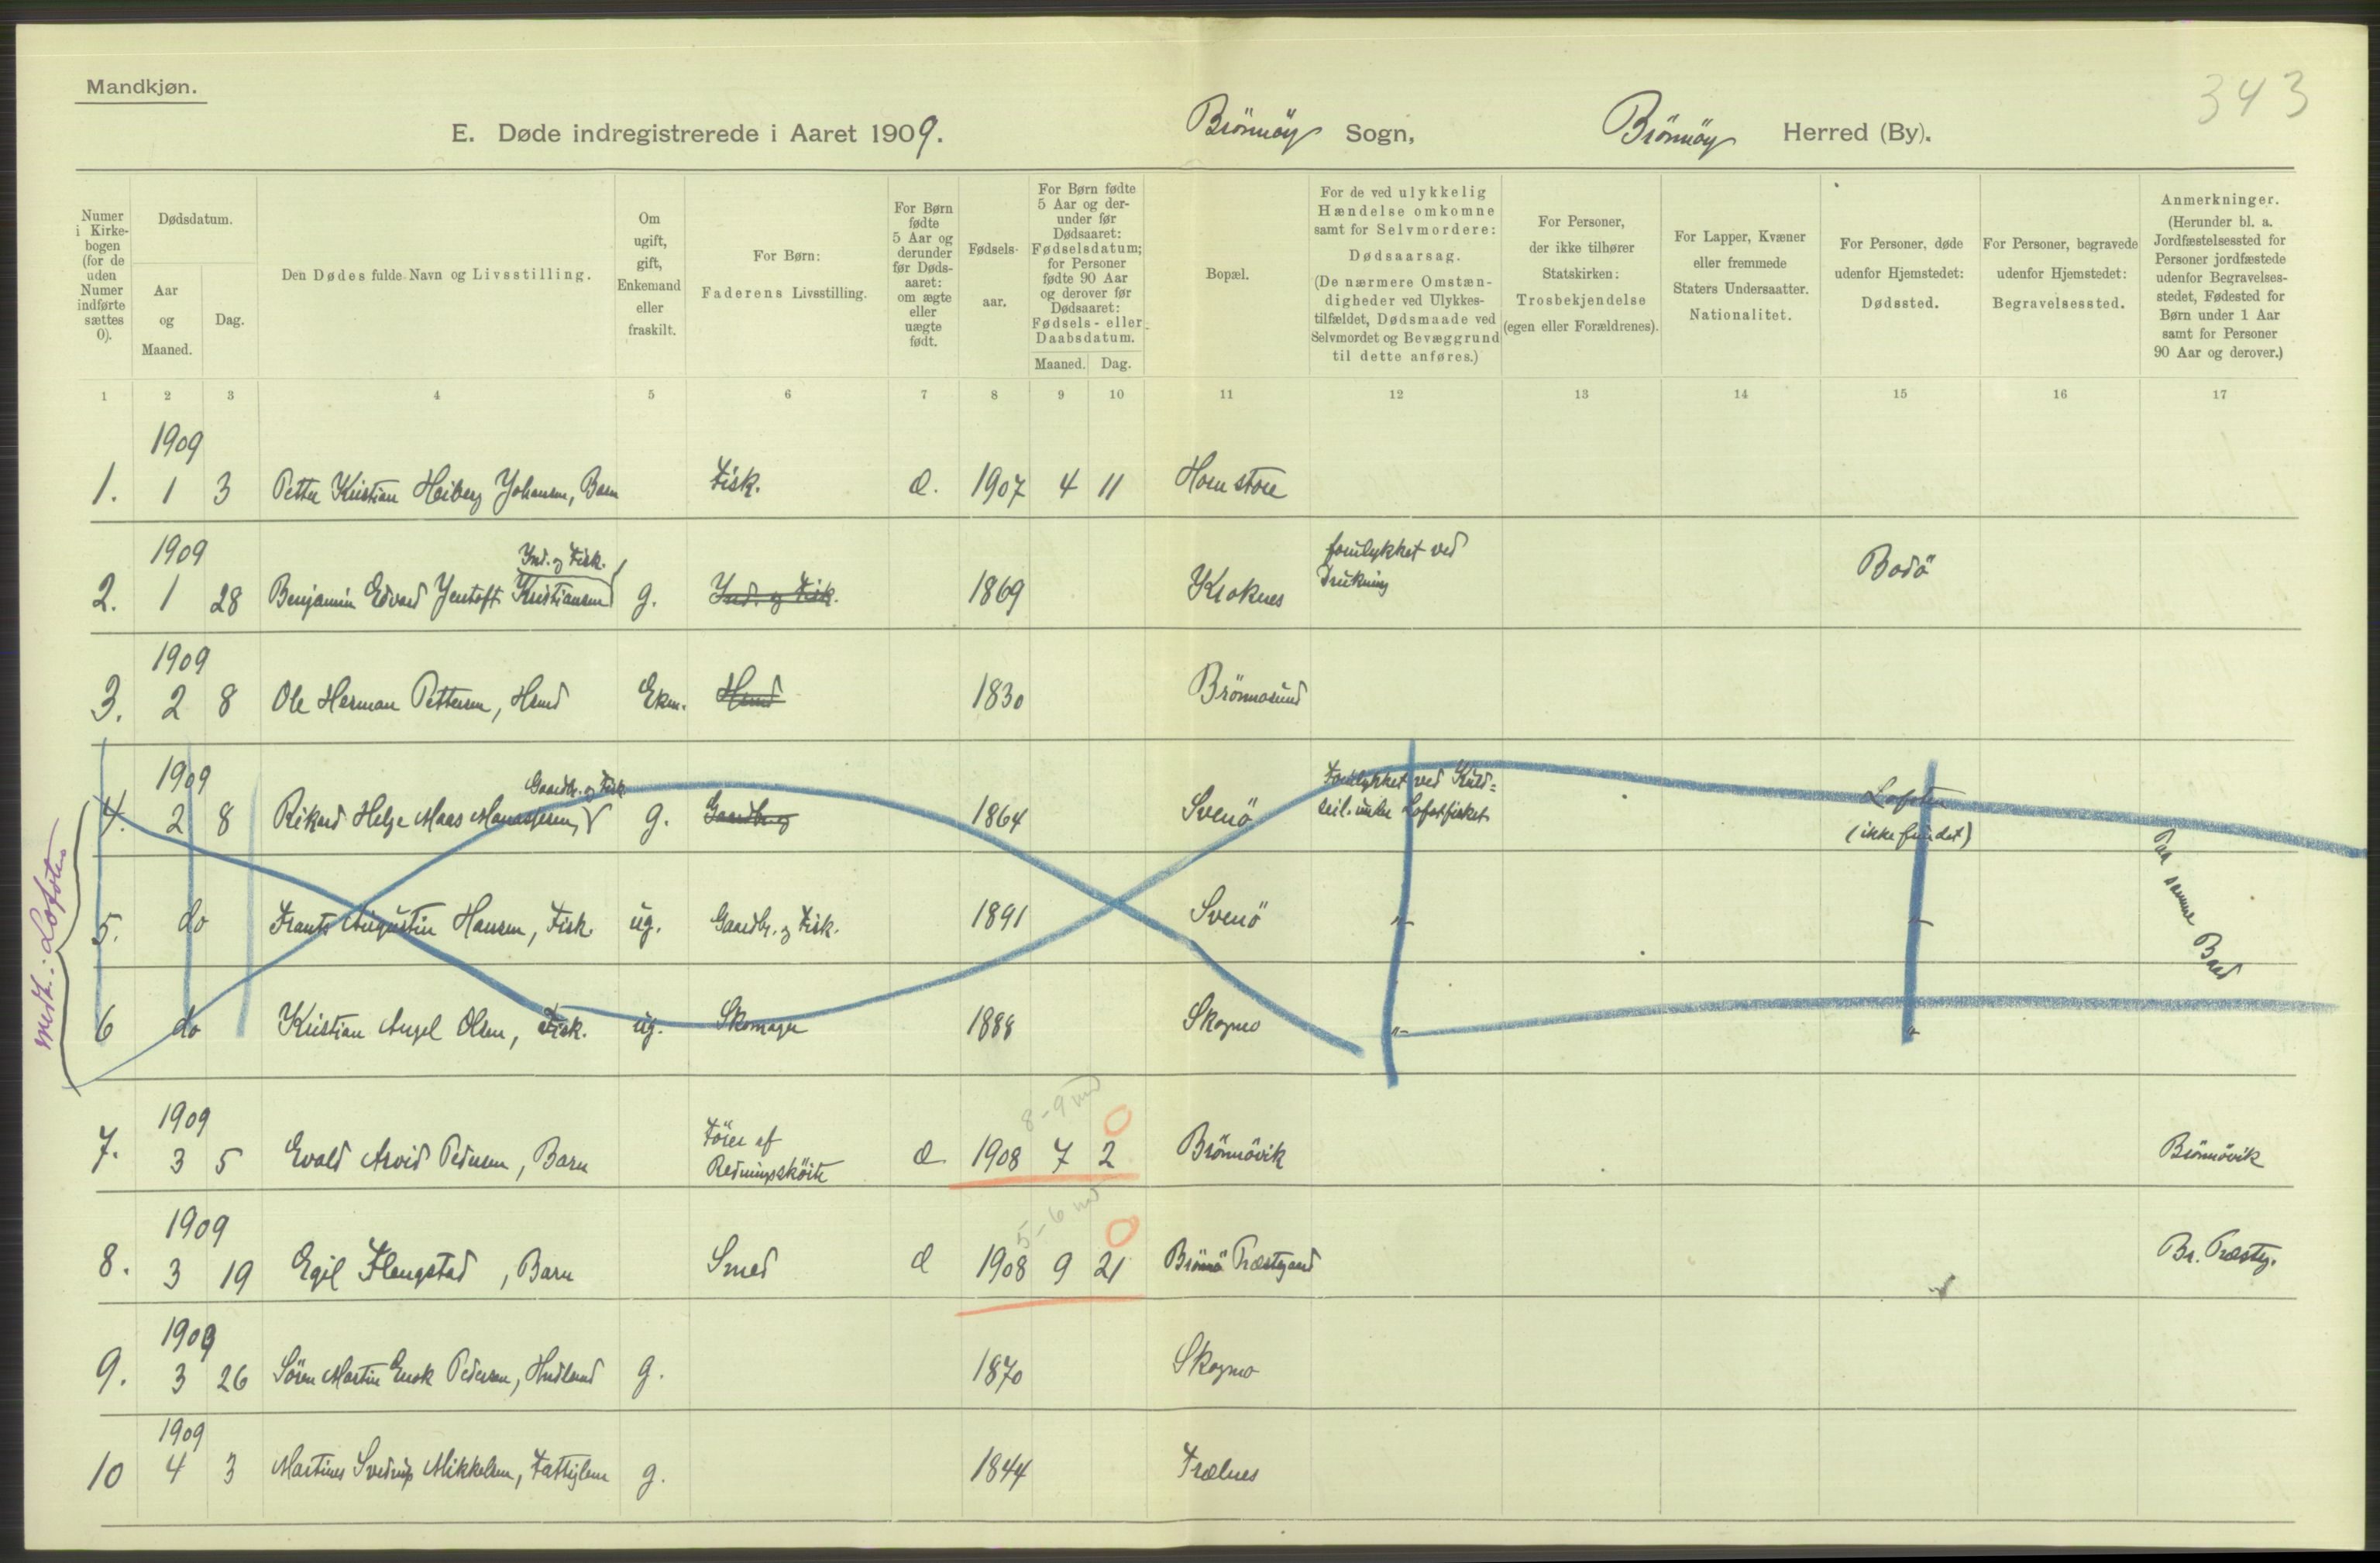 343
Mandkjøn.
E. Døde indregistrerede i Aaret 1909. Brönnöy Sogn, Brönnöy Herred (By).
Numer i Kirkebogen (for de uden Numer indførte sættes 0).
Dødsdatum.
Aar og Maaned.
Dag.
Den Dødes fulde Navn og Livsstilling.
Om ugift, gift, Enkemand eller fraskilt.
For Børn: Faderens Livsstilling.
For Børn fødte 5 Aar og derunder før Dødsaaret: om ægte eller uægte født.
Fødselsaar.
For Børn fødte 5 Aar og derunder før Dødsaaret: Fødselsdatum; for Personer fødte 90 Aar og derover før Dødsaaret: Fødsels- eller Daabsdatum.
Maaned. Dag.
Bopæl.
For de ved ulykkelig Hændelse omkomne samt for Selvmordere: Dødsaarsag. (De nærmere Omstændigheder ved Ulykkestilfældet, Dødsmaade ved Selvmordet og Bevæggrund til dette anføres.)
For Personer, der ikke tilhører Statskirken: Trosbekjendelse (egen eller Forældrenes).
For Lapper, Kvæner eller fremmede Staters Undersaatter. Nationalitet.
For Personer, døde udenfor Hjemstedet: Dødssted.
For Personer, begravede udenfor Hjemstedet: Begravelsessted.
Anmerkninger. (Herunder bl. a. Jordfæstelsessted for Personer jordfæstede udenfor Begravelsesstedet, Fødested for Børn under 1 Aar samt for Personer 90 Aar og derover.)
1 2 3 4 5 6 7 8 9 10 11 12 13 14 15 16 17
1909
1. 1 3 Petter Kristian Heiberg Johansen, Barn Fisk. Æ. 1907 4 11 Horn store
1909 Ind. og Fisk. forulykket ved
2. 1 28 Benjamin Edvard Jentoft Kristiansen g. Ind. og Fisk. 1869 Kroknes Drukning Bodö
1909
3. 2 8 Ole Herman Pettersen, Hmd Ekm. Hmd 1830 Brönnösund
1909 Gaardbr. og Fisk. Forulykket ved Kuld= Lofoten
4. 2 8 Rikard Helge Maas Manassesen, g. Gaardbr. og 1864 Svenö seil. under Lofotfisket (ikke fundet)
Paa samme Baad
medt. i Lofoten
5. do Frants Augustin Hansen, Fisk. ug. Gaardbr. og Fisk. 1891 Svenö -"- -"-
6 do Kristian Angel Olsen, Fisk. ug. Skomager 1888 Skogmo -"- "
1909 8-9 md 0
7. 3 5 Evald Arvid Pedersen, Barn Förer af Redningsköite Æ 1908 7 2 Brönnövik Brönnövik
1909 5-6 md 0
8. 3 19 Egil Flengstad, Barn Smed Æ 1908 9 21 Brönnö Præstegaard Br. Præstg.
1909
9. 3 26 Sören Martin Enok Pedersen, Hudland g. 1870 Skogmo
1909
10 4 3 Martinus Sverdrup Mikkelsen, Fattiglem g. 1844 Trælnes